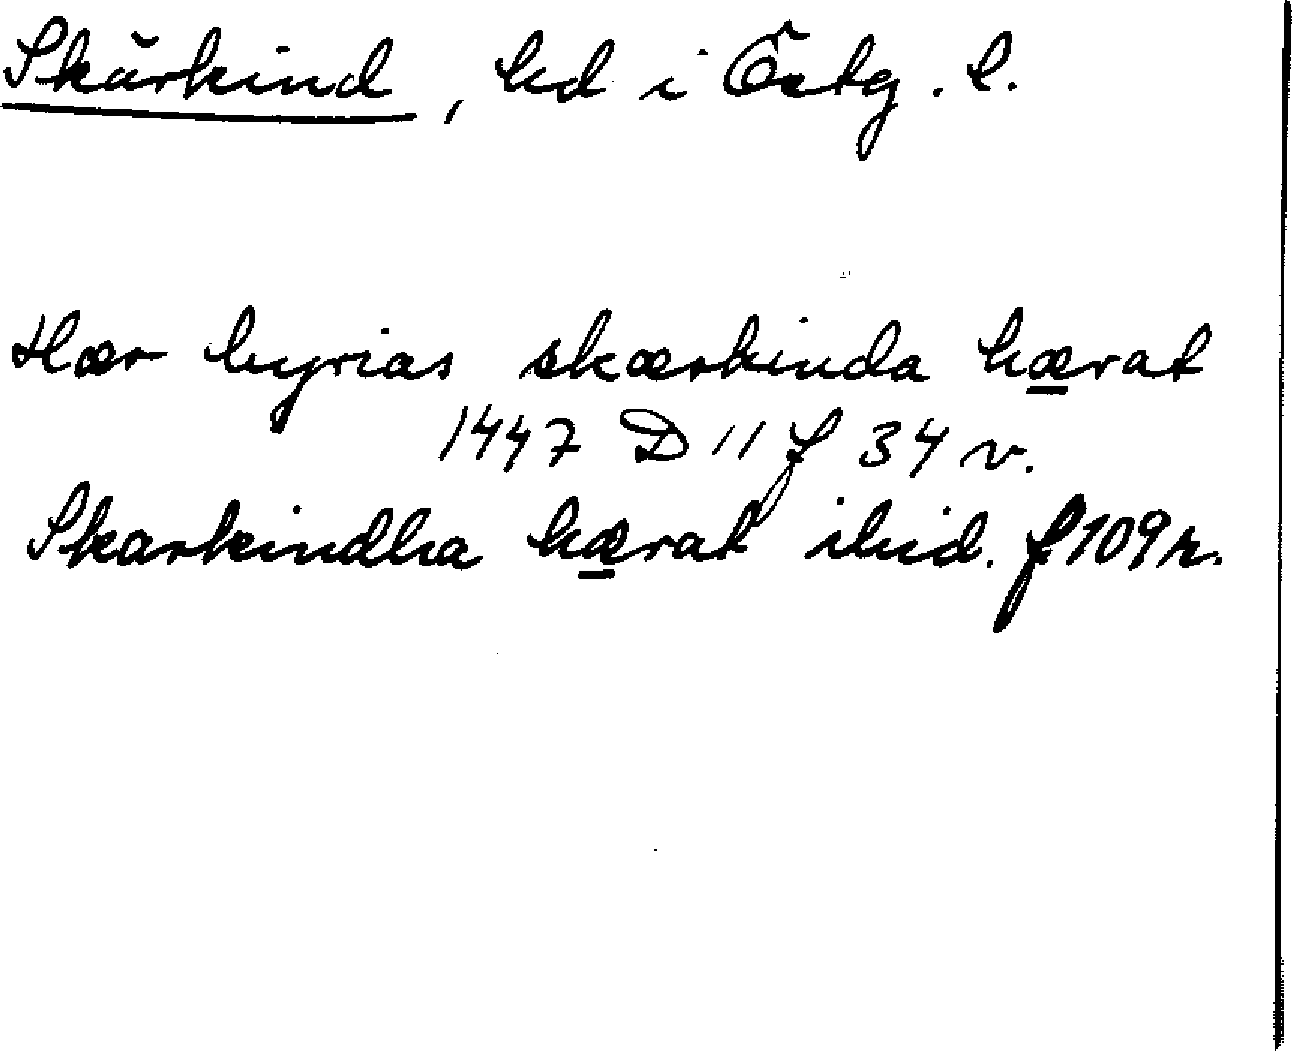 Skärkind, hd i Östg. l.
Hær byrias skærkinda hærat
1447 D 11 f 34 v.
Skarkindha hærat ibid. f 109 r.